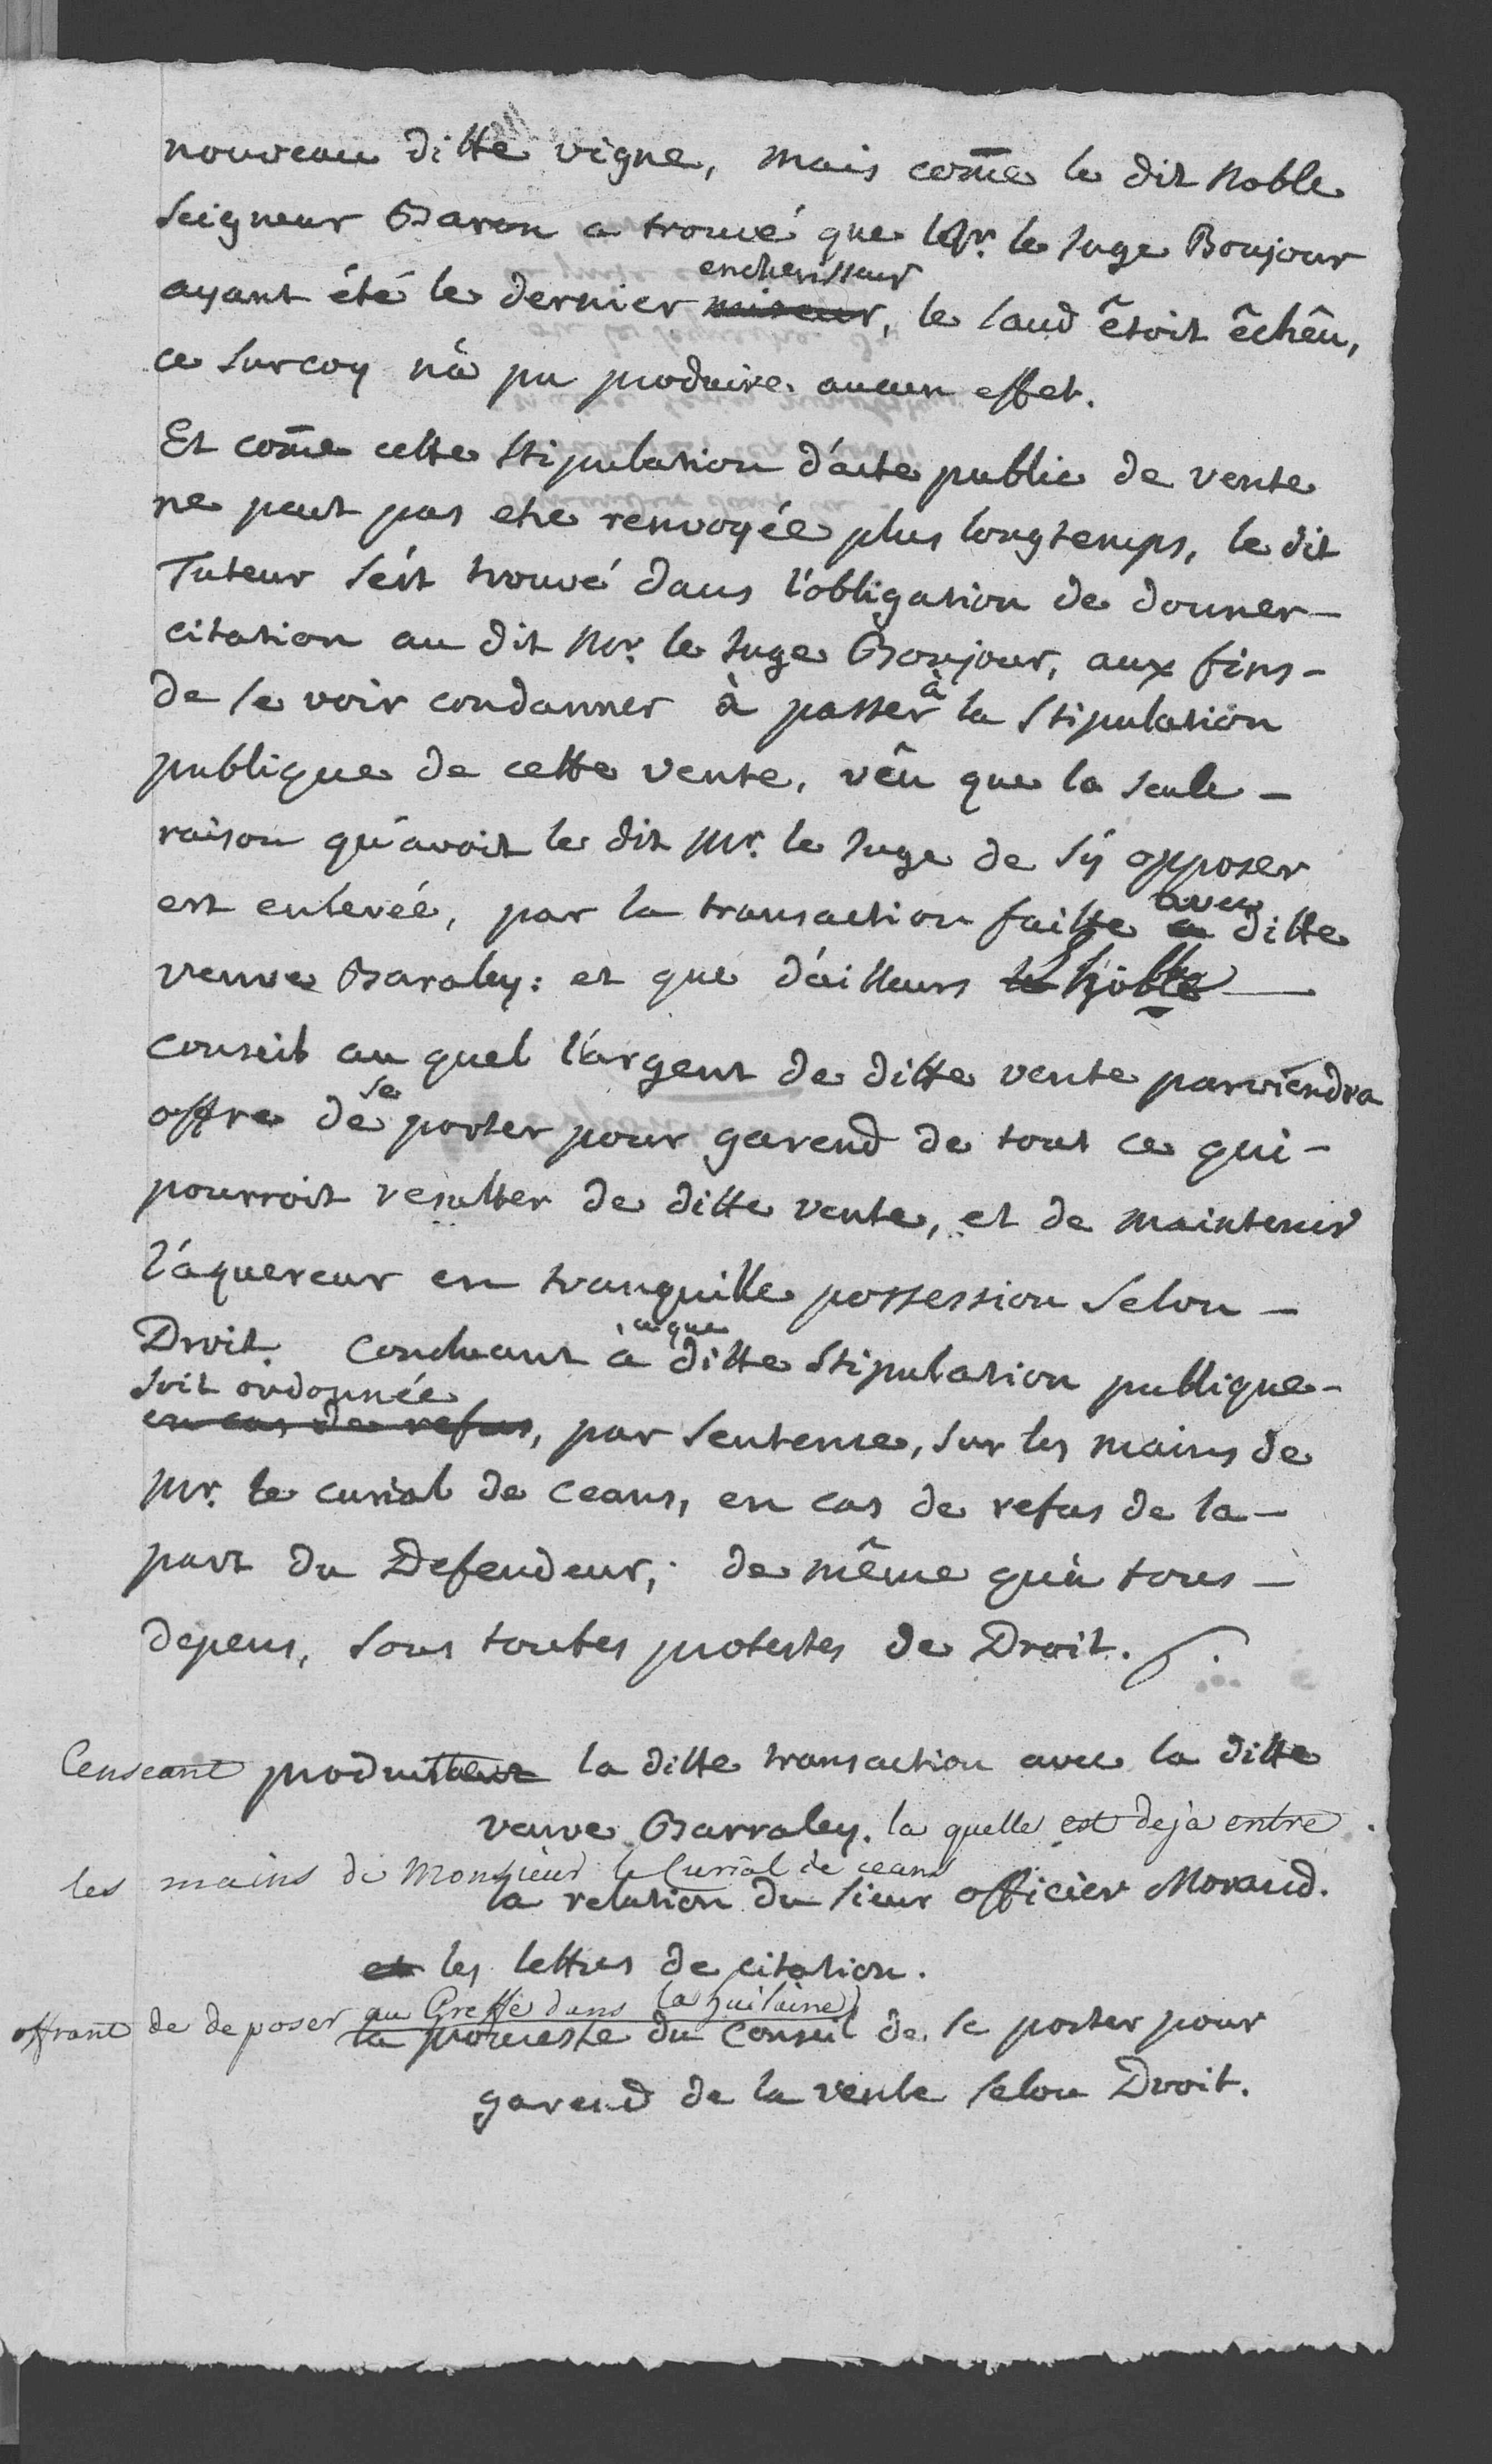 nouveau ditte vigne, mais com̄e le dit Noble
Seigneur Baron a trouvé que le Sr. le Juge Boujour
encherisseur
ayant été le dernier miseur, le laud êtoit êchêu,
ce surcoy n'à pu produire aucun effet.
Et com̄e cette stipulation d'acte public de vente
ne peut pas etre renvoyée plus longtemps, le dit
Tuteur s'est trouvé dans l'obligation de donner-
citation au dit Mr. le Juge Boujour, aux fins-
à
de se voir condanner à passer la stipulation
publique de cette vente, vêu que la seule-
raison qu'avoit le dit Mr. le Juge de s'y opposer
avec
est enlevée, par la transaction faitte a ditte
veuve Baraley: et que d'ailleurs le Noble-
conseil au quel l'argent de ditte vente parviendra
se
offre de porter pour garend de tout ce qui-
pourroit resulter de ditte vente, et de maintenir
l'aquereur en tranquille possession selon-
ce que
Droit. Concluant à ditte stipulation publique-
soit ordonnée
en cas de refus, par sentence, sur les mains de
Mr. le curial de ceans, en cas de refus de la-
part du Defendeur; de même qu'à tous-
depens, sous toutes protestes de Droit.
Censeant produitteur la ditte transaction avec la ditte
veuve Barraley. la quelle est deja entre
les mains de Monsieur le Curial de ceans
la relation du sieur officier Morand.
et les lettres de citation.
offrant de deposer au Greffe dans la huitaine
la promeste du Conseil de se porter pour
garend de la vente selon Droit.